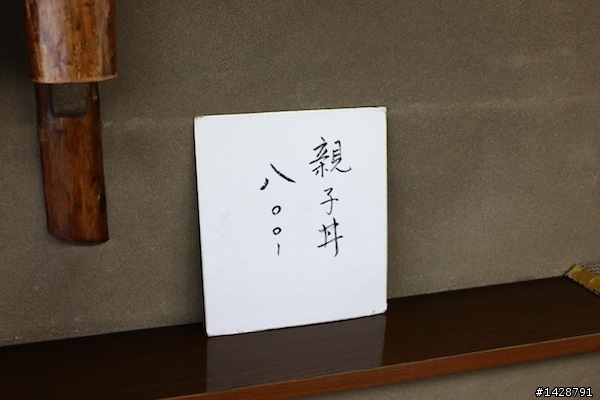 親子丼
八〇〇-
#1428791